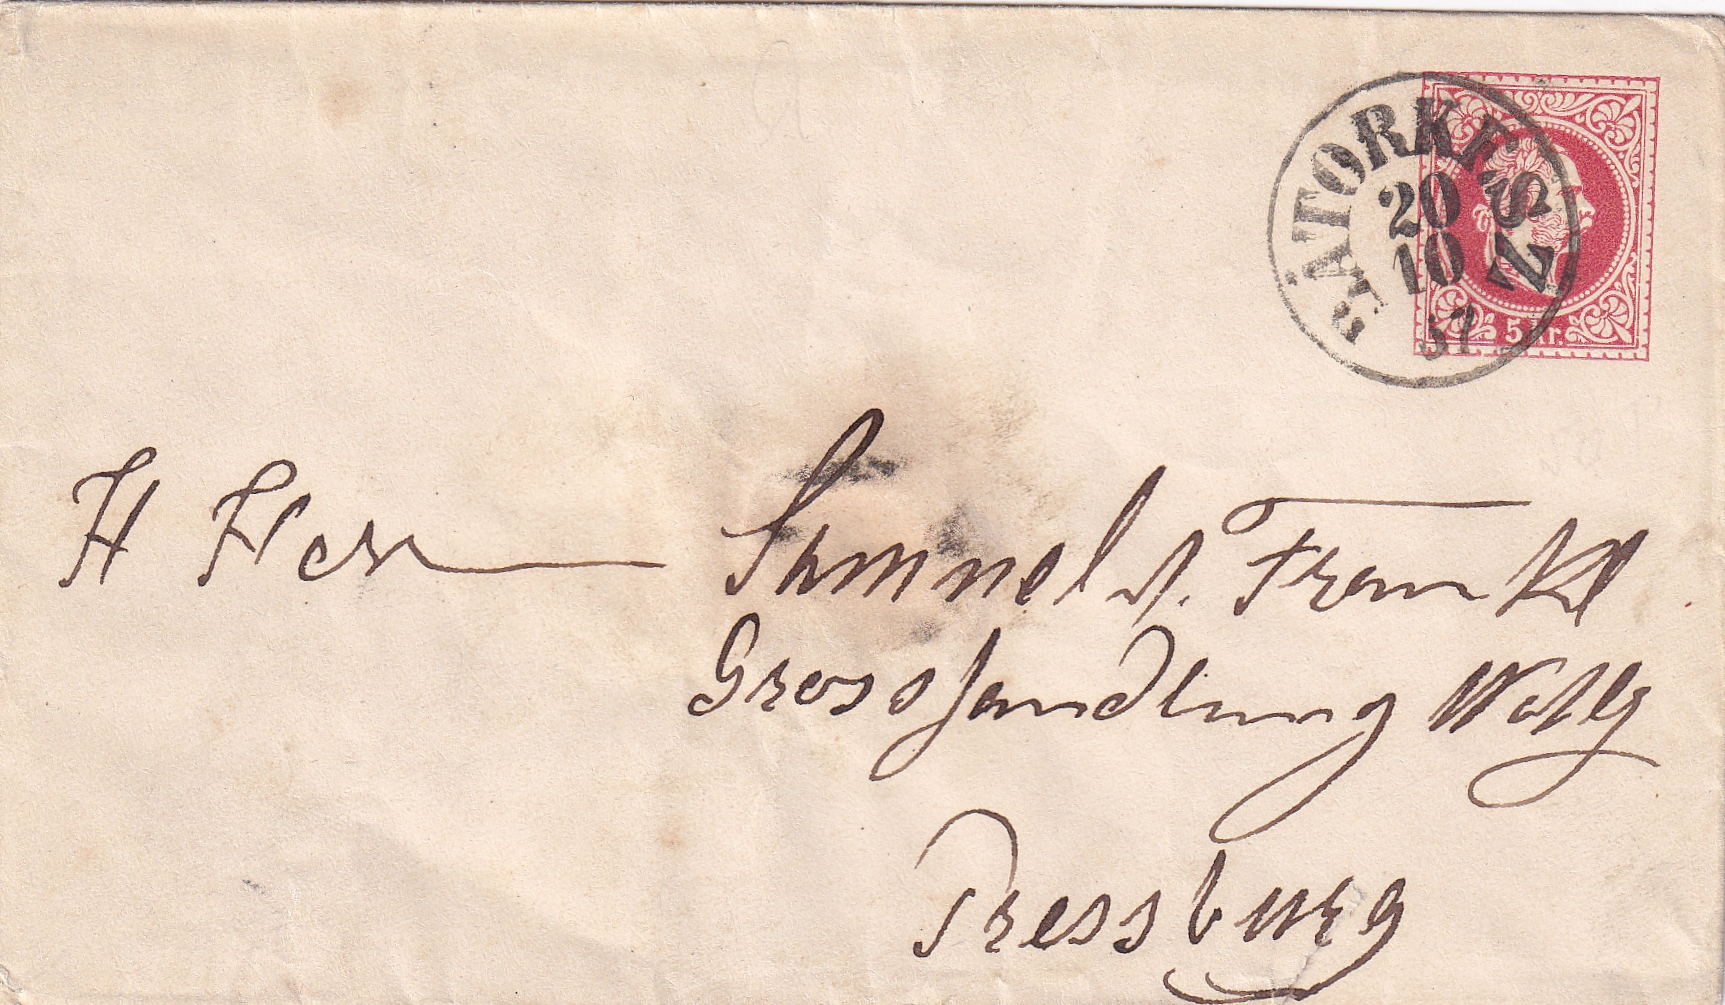 SÁTORKESZ
20
10
5 kr.
H Herr Samuel s. Frankl
Grosshandlung Wohlg
Pressburg